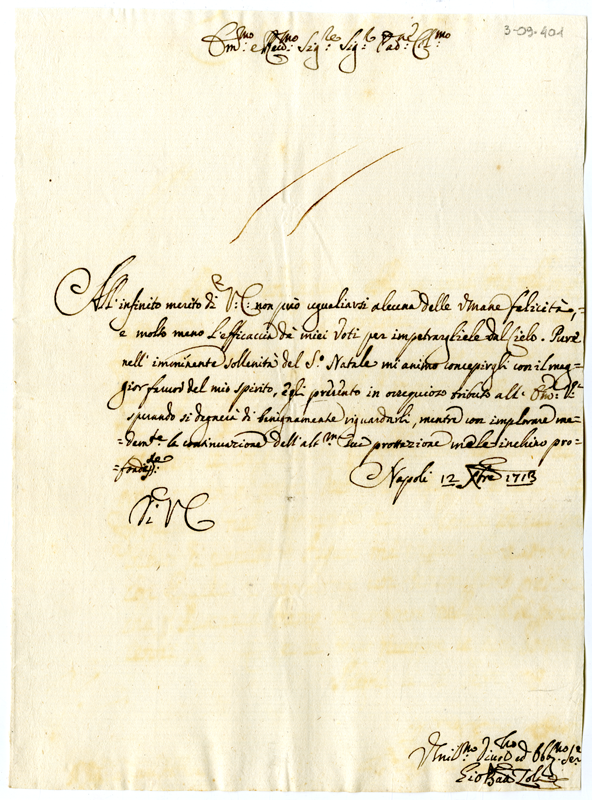 3-09-401
Em.mo e Rev.mo Sig.re Sig.r Pad.ne Col.mo
All' infinito merito di V: E: non può uguagliarsi alcuna delle Umane felicità,
e molto meno l'efficaccia de miei Voti per impetrargliele dal Cielo. Pure
nell' imminente sollenità del S.o Natale mi animo concepirgli con il mag=
gior favor del mio spirito, e gli presento in ossequioso tributo all'
sperando si degnerà di benignamente riguardarli, mentre con implorare me=
=dem.te la continuazione dell' alt.ma sua protezione me le inchino pro=
=fondiss.te
Napoli 12 Xbre 1713
Di V E
Umil.mo Div.mo ed Obb.mo Ser.
Gio Batta